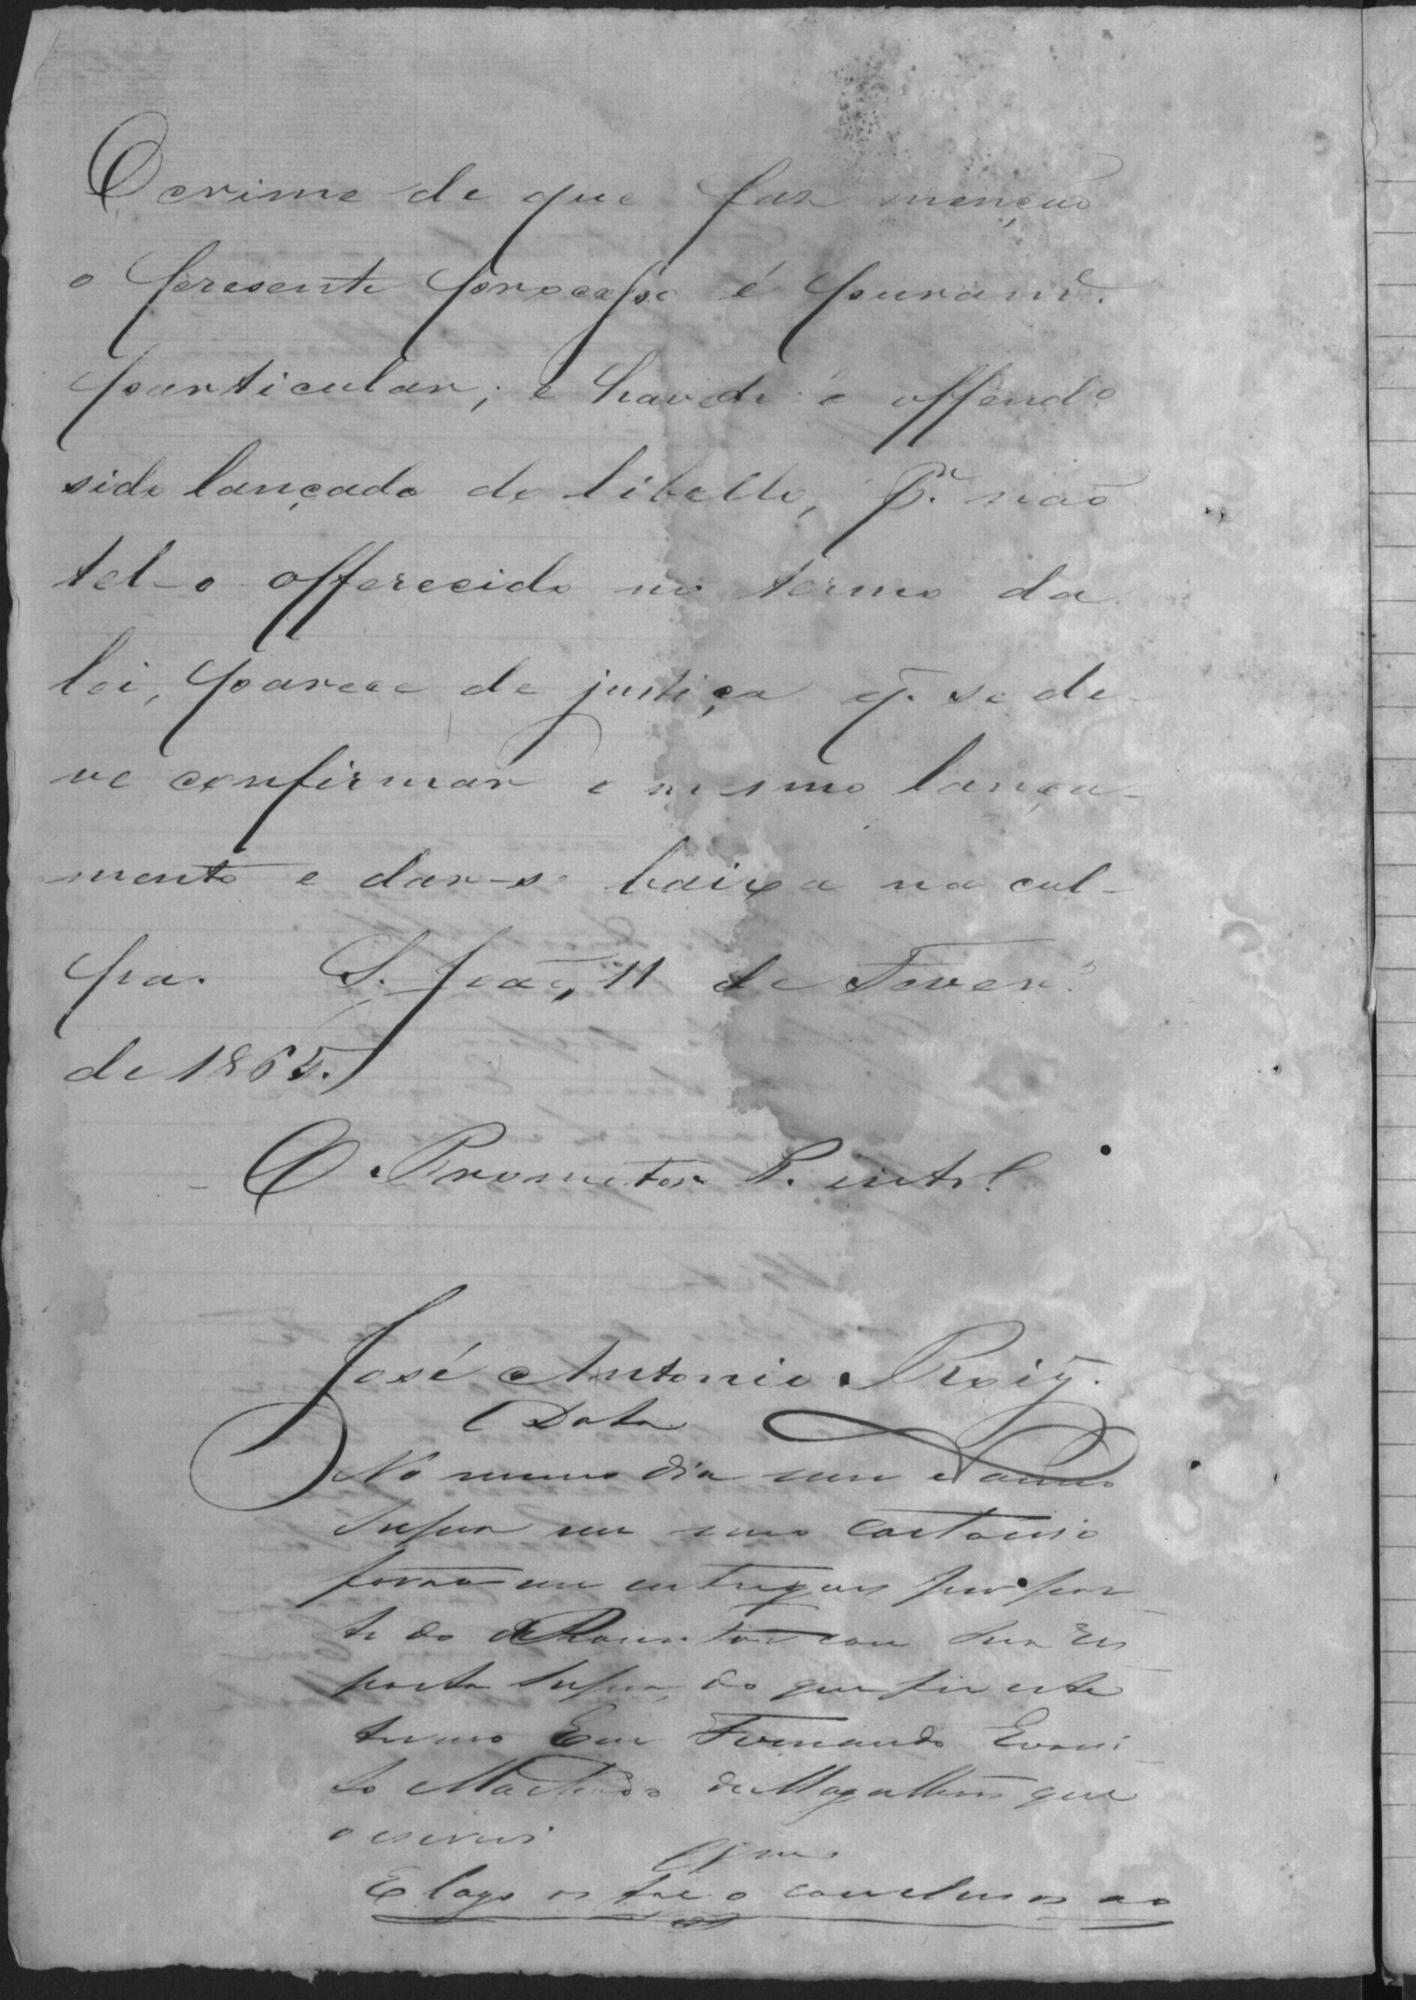 O crime de que faz menção
o presente processo é puramᵉ.
particular; e havdᵒ o offendᵒ
sido lançado do libello, pʳ. não
tel-o offerecido no termo da
lei, parece de justiça q̃. se de-
ve confirmar o mesmo lança-
mento e dar-se baixa na cul-
pa. S. João, 11 de Feverº.
de 1865.
O Promotor P. intº.
José Antonio Roiz.
Data
No mesmo dia mez e anno
supra em meu Cartorio
forão me entregues por par-
te do Promotor com sua res
posta supra, do que fiz este
termo Eu Fernando Evaris-
to Machado de Magalhães que
o escrevi
Clsm
E logo os faço conclusos ao